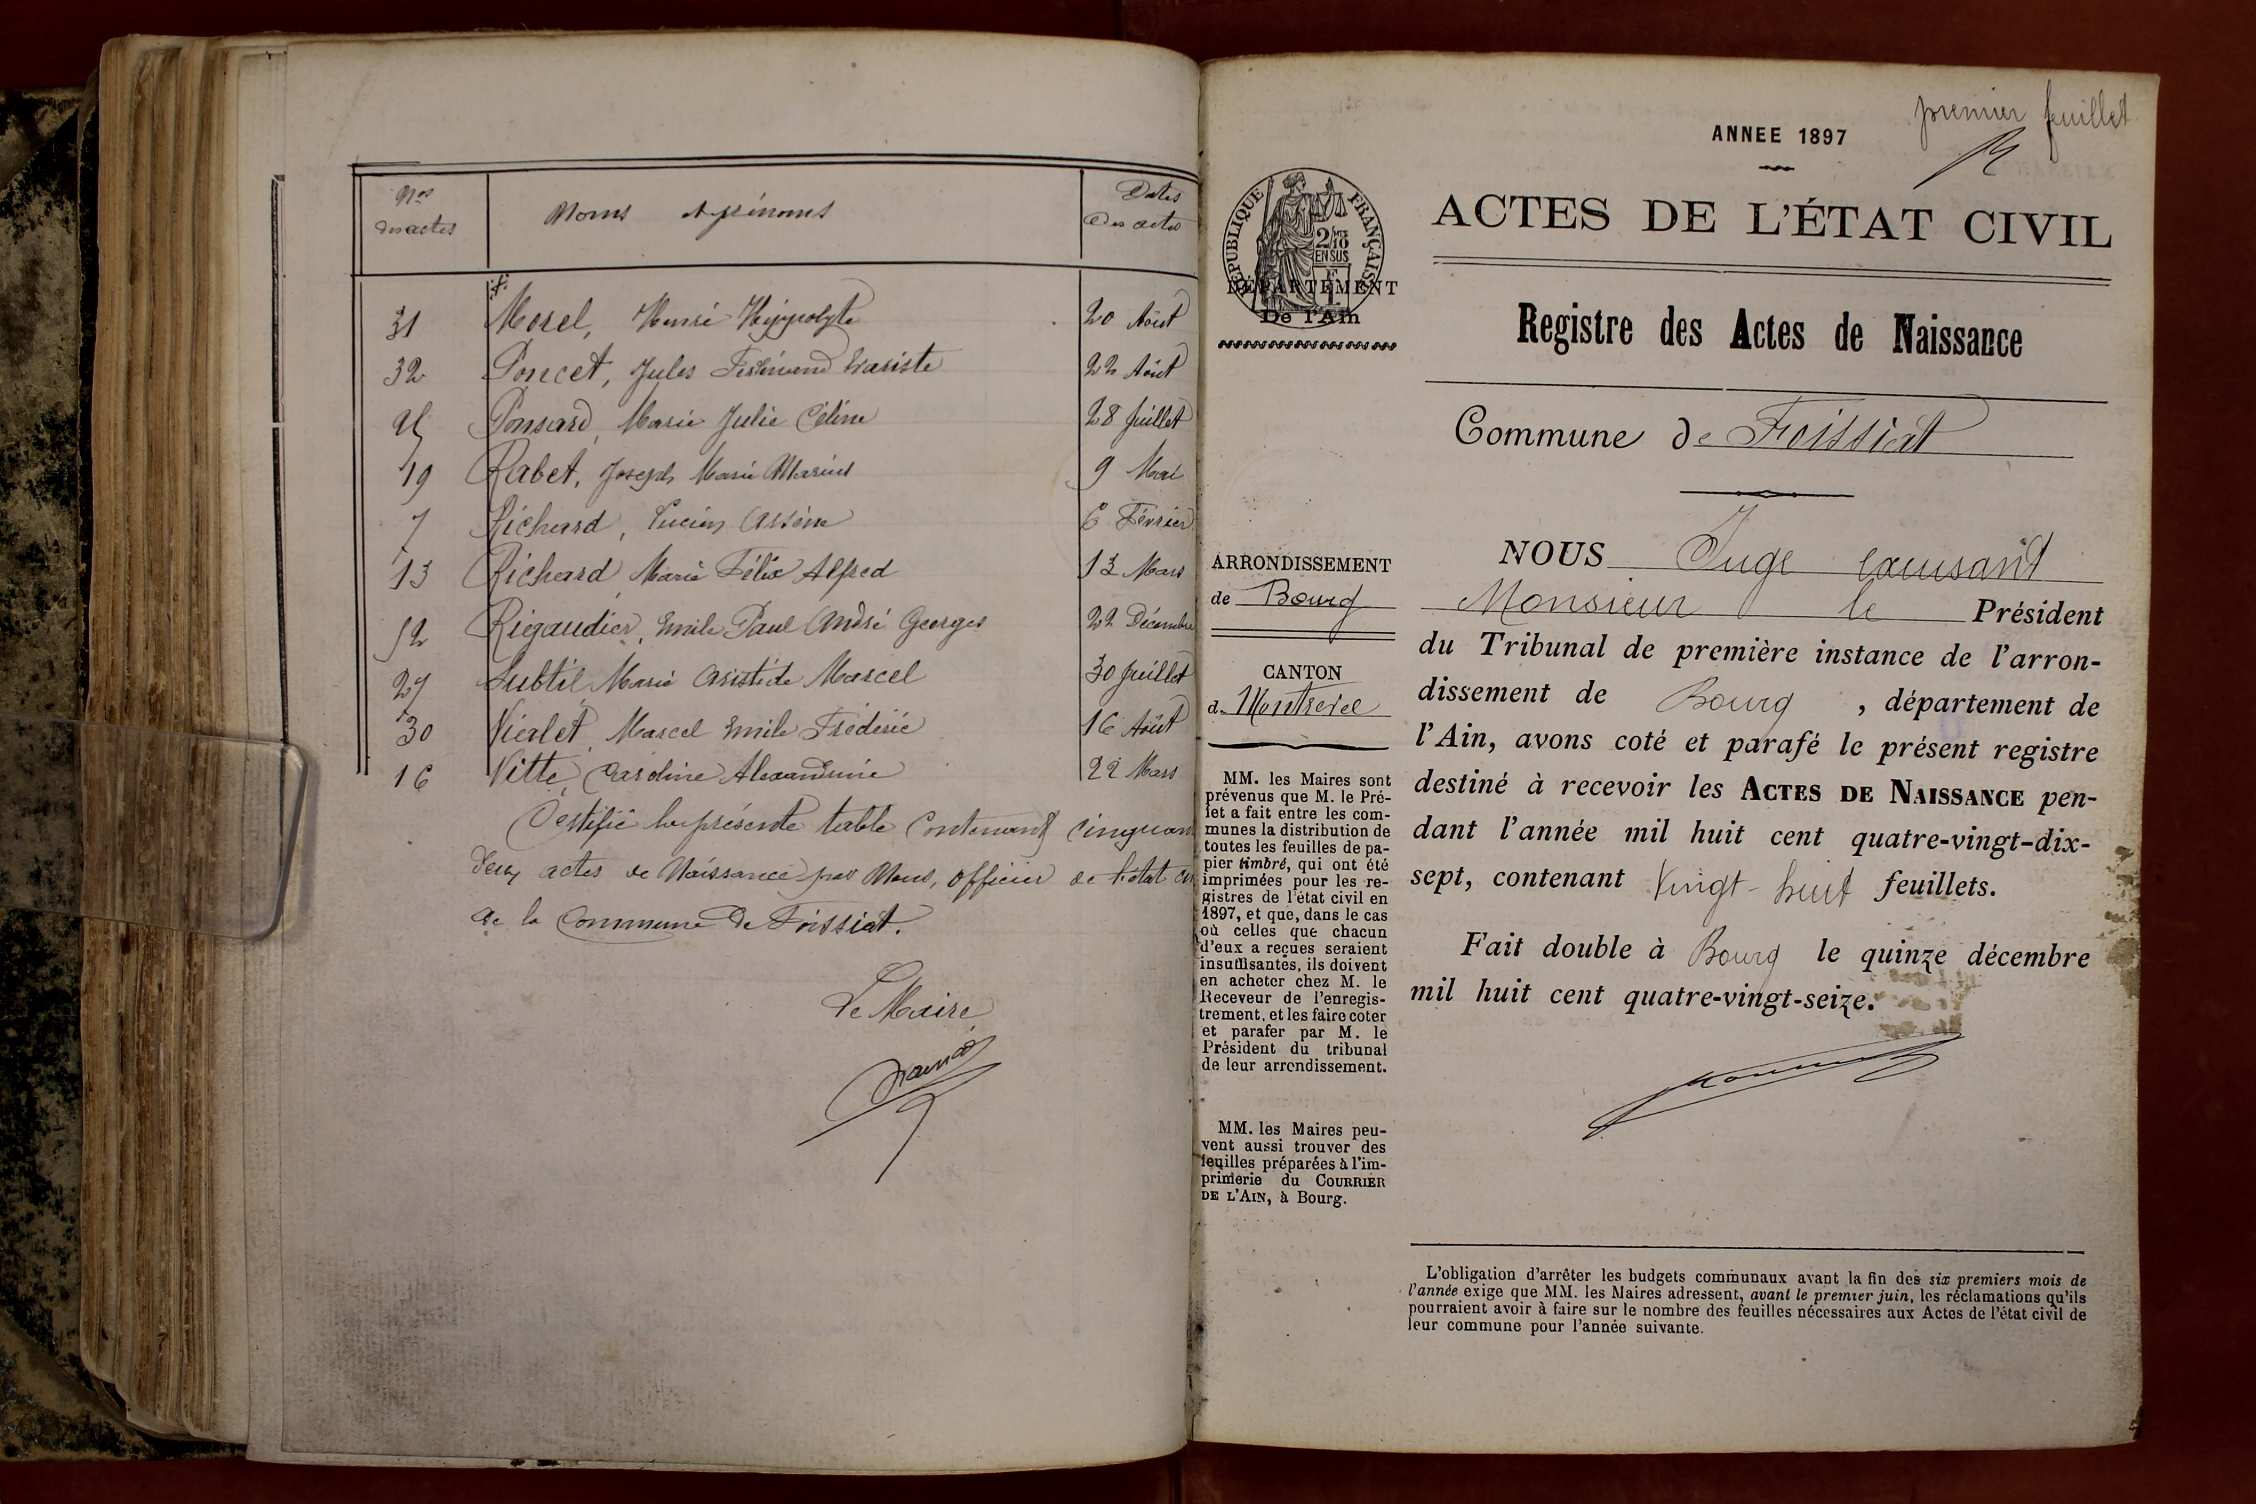 Nos des actes
Noms et prénoms
Dates des actes
31 Morel, Henri Hippolyte 20 Août
32 Poncet, Jules Ferdinand Evariste 22 Août
25 Ponsard, Marie Julie Céline 28 Juillet
19 Rabet, Joseph Marie Marius 9 Mai
7 Richard, Lucien Arsène 6 Février
13 Richard, Marie Félix Alfred 13 Mars
52 Rigaudier, Emile Paul André Georges 22 Décembre
27 Subtil, Marie Aristide Marcel 30 Juillet
30 Vialet, Marcel Emile Frédéric 16 Août
16 Vitte, Caroline Alexandrine 22 Mars
Certifié la présente table contenant cinquan
deux actes de Naissance par Nous, officier de l'état ci
de la Commune de Foissiat.
Le Maire
premier feuillet
ANNEE 1897
ACTES DE L'ÉTAT CIVIL
Registre des Actes de Naissance
Commune de Foissiat
RÉPUBLIQUE FRANÇAISE
2/10 EN SUS
DÉPARTEMENT
De l'Ain
ARRONDISSEMENT
de Bourg
CANTON
de Montrevel
MM. les Maires sont
prévenus que M. le Pré-
fet a fait entre les com-
munes la distribution de
toutes les feuilles de pa-
pier timbré, qui ont été
imprimées pour les re-
gistres de l'état civil en
1897, et que, dans le cas
où celles que chacun
d'eux a reçues seraient
insuffisantes, ils doivent
en acheter chez M. le
Receveur de l'enregis-
trement, et les faire coter
et parafer par M. le
Président du tribunal
de leur arrondissement.
MM. les Maires peu-
vent aussi trouver des
feuilles préparées à l'im-
primerie du COURRIER
DE L'AIN, à Bourg.
NOUS Juge excusant
Monsieur le Président
du Tribunal de première instance de l'arron-
dissement de Bourg , département de
l'Ain, avons coté et parafé le présent registre
destiné à recevoir les ACTES DE NAISSANCE pen-
dant l'année mil huit cent quatre-vingt-dix-
sept, contenant Vingt-huit feuillets.
Fait double à Bourg le quinze décembre
mil huit cent quatre-vingt-seize.
L'obligation d'arrêter les budgets communaux avant la fin des six premiers mois de
l'année exige que MM. les Maires adressent, avant le premier juin, les réclamations qu'ils
pourraient avoir à faire sur le nombre des feuilles nécessaires aux Actes de l'état civil de
leur commune pour l'année suivante.